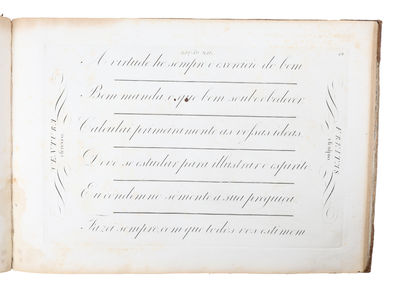 A virtude he sempre o exercicio do bem
Bem manda o que bem soube obedecer
Calculai primeiramente as vossas ideas.
Deve se estudar para illustrar o espirito
Eu condemno sómente a sua preguiça.
Fazei sempre, com que todos vos estimem
VENTURA
VENTURA